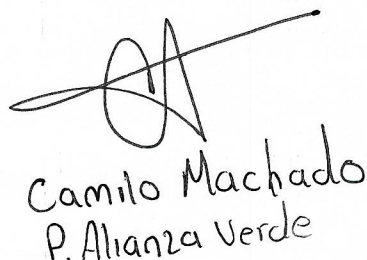 Camilo Machado
P. Alianza Verde